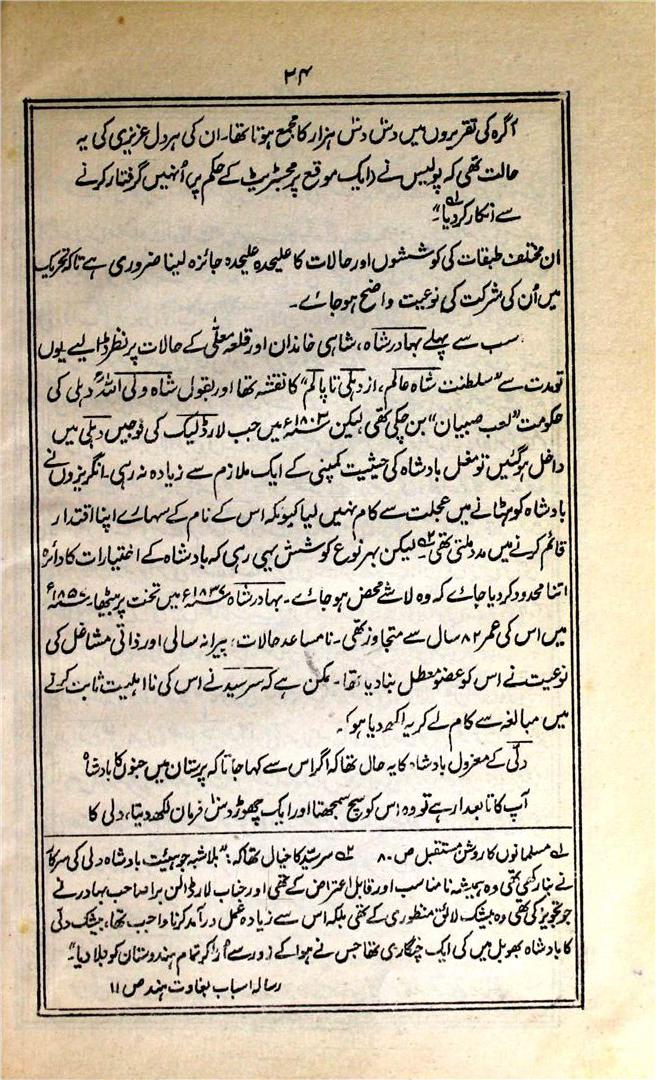 ۲۴
آگرہ کی تقریروں میں دس دس ہزار کا مجمع ہوتا تھا۔ ان کی ہر دل عزیزی کی یہ
حالت تھی کہ پولیس نے (ایک موقع پر مجسٹریٹ کے حکم پر) اُنہیں گرفتار کرنے
سے انکار کر دیا"۔ لہ
ان مختلف طبقات کی کوششوں اور حالات کا علیحدہ علیحدہ جائزہ لینا ضروری ہے تاکہ تحریک
میں اُن کی شرکت کی نوعیت واضح ہو جائے۔
سب سے پہلے بہادر شاہ، شاہی خاندان اور قلعہ معلّٰی کے حالات پر نظر ڈالیے یوں
تو مدت سے "سلطنت شاہ عالم، از دہلی تا پالم" کا نقشہ تھا اور بقول شاہ ولی اللہؒ دہلی کی
حکومت "لعب صبیان" بن چکی تھی لیکن ۱۸۰۳ء میں جب لارڈ لیک کی فوجیں دہلی میں
داخل ہو گئیں تو مغل بادشاہ کی حیثیت کمپنی کے ایک ملازم سے زیادہ نہ رہی۔ انگریزوں نے
بادشاہ کو ہٹانے میں عجلت سے کام نہیں لیا کیونکہ اس کے نام کے سہارے اپنا اقتدار
قائم کرنے میں مدد ملتی تھی۔ ۲ہ لیکن بہر نوع کوشش یہی رہی کہ بادشاہ کے اختیارات کا دائرہ
اتنا محدود کر دیا جائے کہ وہ لاشے محض ہو جائے۔ بہادر شاہ ۱۸۳۷ء میں تخت پر بیٹھا۔ ۱۸۵۷ء
میں اس کی عمر ۸۲ سال سے متجاوز تھی۔ نامساعد حالات، پیرانہ سالی اور ذاتی مشاغل کی
نوعیت نے اس کو عضو معطل بنا دیا تھا۔ ممکن ہے کہ سرسید نے اس کی نااہلیت ثابت کرنے
میں مبالغہ سے کام لے کر یہ لکھ دیا ہو۔
دلی کے معزول بادشاہ کا یہ حال تھا کہ اگر اس سے کہا جاتا کہ پرستان میں جنوں کا بادشاہ
آپ کا تابعدار ہے تو وہ اس کو سچ سمجھتا اور ایک چھوڑ دس فرمان لکھ دیتا، دلی کا
لہ مسلمانوں کا روشن مستقبل ص ۸۰ ۲ہ سرسیّد کا خیال تھا کہ: "بلاشبہ جو ہیئت بادشاہ دلی کی سرکار
نے بنا رکھی تھی وہ ہمیشہ نامناسب اور قابل اعتراض کے تھی اور جناب لارڈ الن برا صاحب بہادر نے
جو تجویز کی تھی وہ بیشک لائق منظوری کے تھی بلکہ اس سے زیادہ عمل درآمد کرنا واجب تھا، بیشک دلی
کا بادشاہ بھوبل میں کی ایک چنگاری تھا جس نے ہوا کے زور سے اُڑا کر تمام ہندوستان کو جلا دیا"۔
رسالہ اسباب بغاوت ہند ص ۱۱